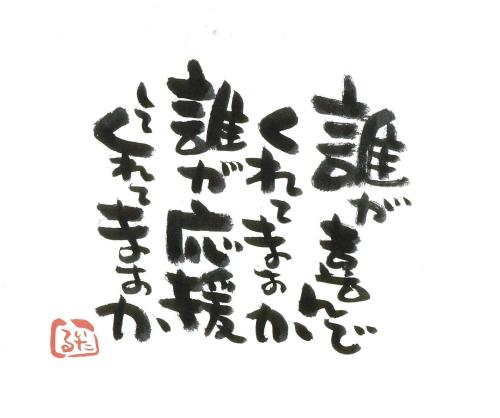 誰が喜んで
くれてますか
誰が応援
してくれてますか